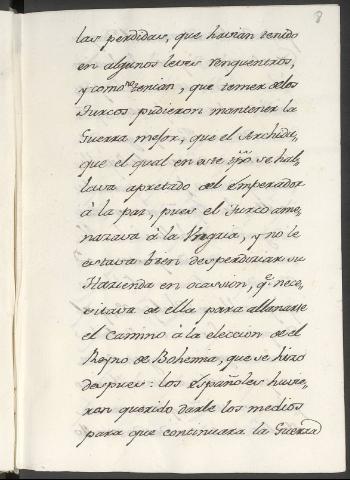 8
las perdidas, que havian tenido
en algunos leves renquentros,
y como no tenian, que temer de los
Turcos pudieron mantener la
Guerra mejor, que el Archidu,
que el qual en este tpõ se hal,
lava apretado del Emperador
à la paz, pues el Turco ame,
nazava à la Vngria, y no le
estava bien desperdiciar su
Hazienda en ocassion, q.e nece,
sitava de ella para allanarse
el camino à la eleccion de el
Reyno de Bohemia, que se hizo
despues: los Españoles huvie,
ran querido darle los medios
para que continuara la Guerra